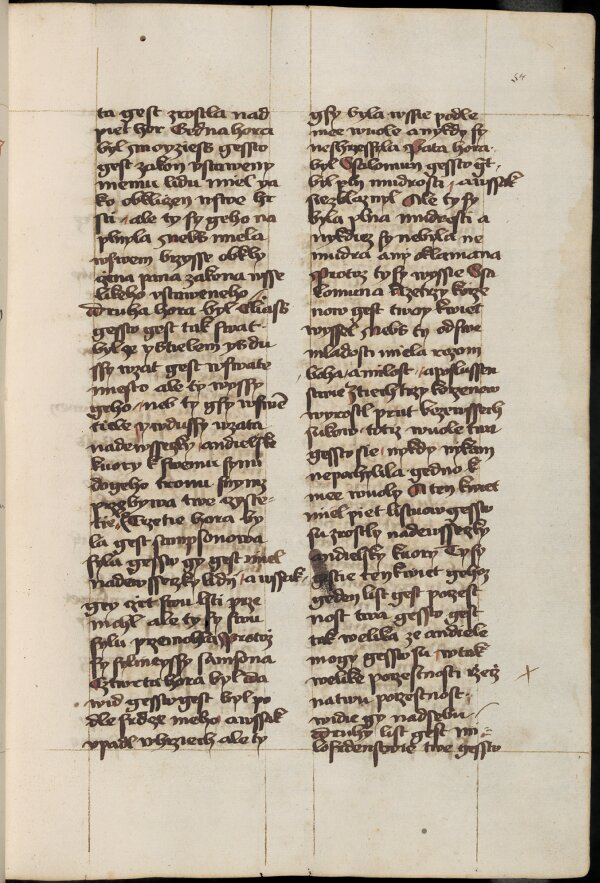 54
ta gest zrostla nad
piet hor Gedna hora
byl zmoyziess gessto
gest zakon vstaweny
memu lidu miel ya
ko obliczen wswe hr
sti ale ty sy geho na
plnyla znebs miela
wswem brzysse obkly
czena pana zakona wsse
likeho vstaweneho
Druha hora byl Eliass
gessto gest tak swat
byl ze y stielem y sdu
ssy wzat gest wswate
miesto ale ty wyssy
geho neb ty gsy wswe
tiele y wdussy wzata
nadewssezky andielske
kuory k swemu synu
dogeho tronu snymz
przybywa twe czyste
tie Trzetie hora by
la gest sampsonowa
syla gessto gy gest miel
nadewssezky lidy a wssak
gey czet stou lsti prze
mahl ale ty sy swu
sylu przemahla Protoz
sy sylnieyssy samsona
Cztwrta hora byl da
wid gessto gest byl po
dle srdcze meho a wssak
vpadl whrziech ale ty
gsy byla wssie podle
mee wuole a nykdy sy
neshrzessyla Pata hora
byl Ssalomun gessto gt
byl pln mudrosti a wssak
sezblaznyl Ale ty sy
byla plna mudrosti a
nykdiez sy nebyla ne
mudra any oklamana
Protoz ty sy wyssie Ssa
lomuna Trzetrzy korze
now gest twoy kwiet
wyssel znebs ty odswe
mladosti miela rozom
bcha a milost a poslussen
stwie Ztiech trzy korzenow
wyrostl prut bezewssech
sukow totiz wuole twa
gessto sie nykdy nykam
nepochylila gedno k
mee wuoly A ten kwiet
miel piet listuow gessto
su zrostly nadewssezky
andielsky kuory Ty sy
giestie ten kwiet gehoz
geden list gest poczest
nost twa gessto gest
tak welika ze andiele
mogy gessto su wtak
welike poczestnosti rzeiz
na twu poczestnost
widie gy nad sebu
Druhy list gest mi
losrdenstwie twe gessto